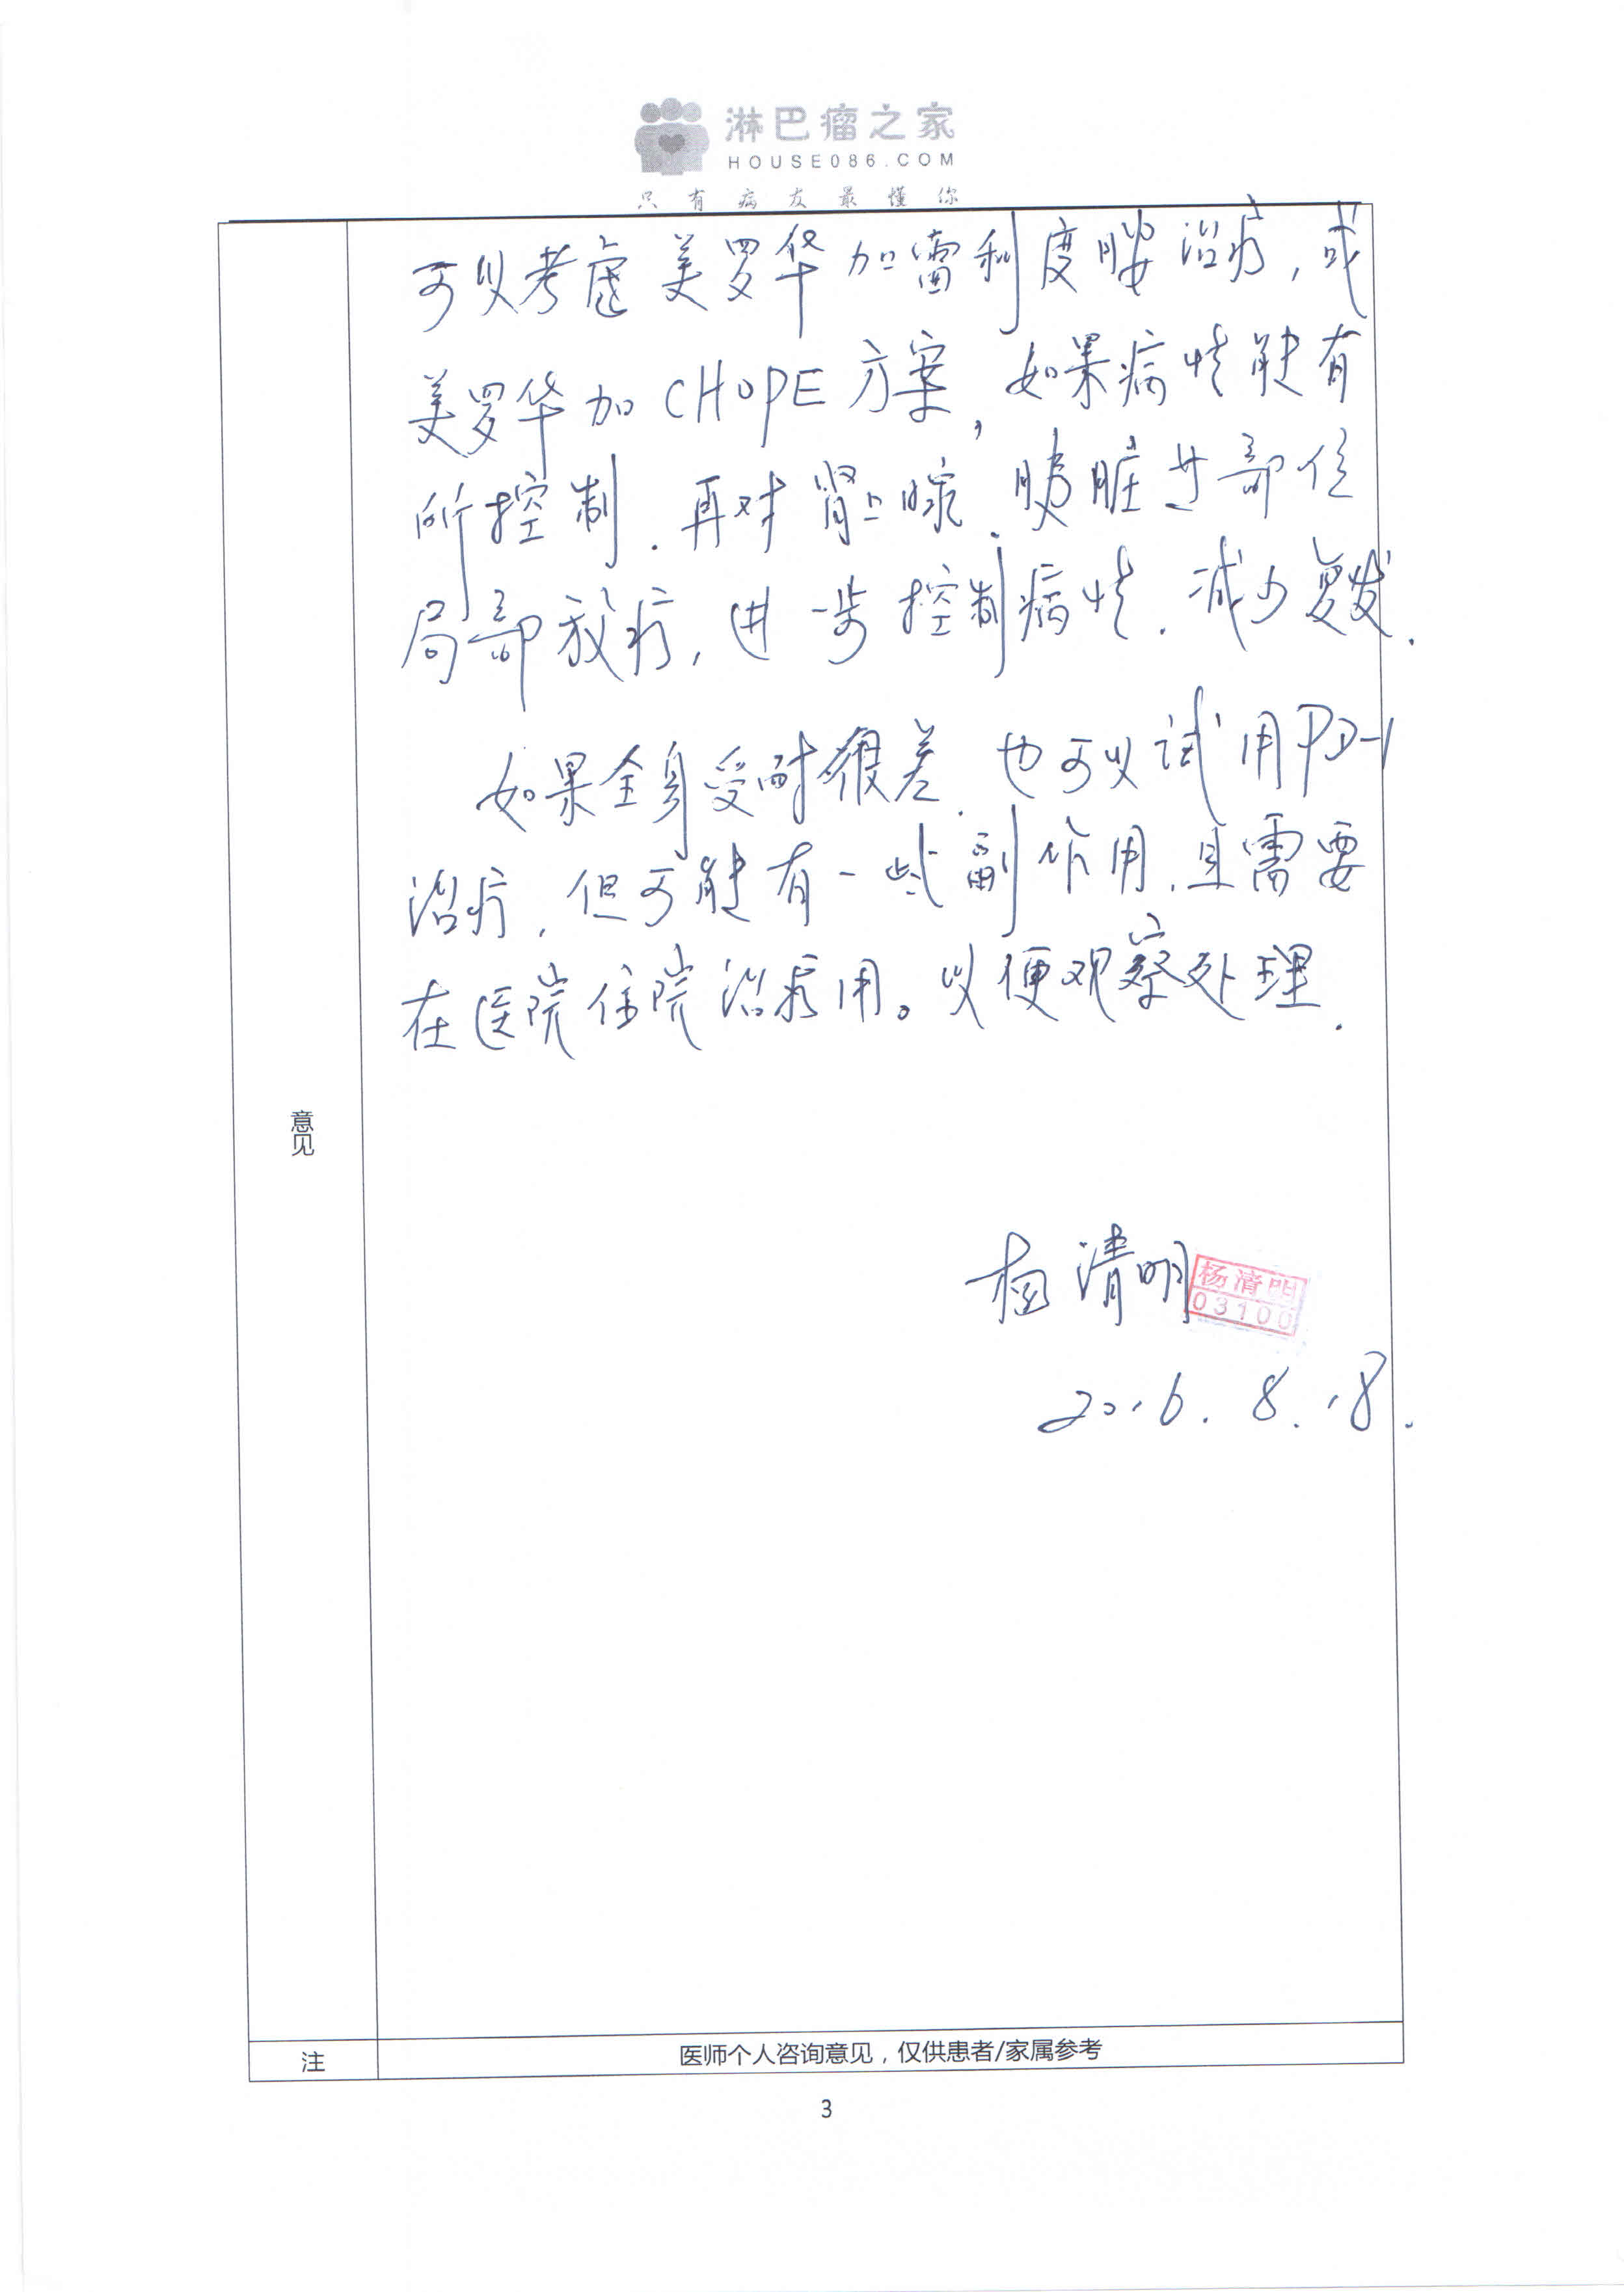 淋巴瘤之家
HOUSE086.COM
只有病友最懂你
可以考虑美罗华加雷利度胺治疗,或
美罗华加CHOPE方案,如果病情能有
所控制.再对肾上腺.胰脏等部位
局部放疗,进一步控制病情.减少复发.
如果全身受耐很差.也可以试用PD-1
治疗,但可能有一些副作用.且需要
在医院住院治疗用。以便观察处理.
意见
杨清明
杨清明
03100
2016.8.18.
注
医师个人咨询意见,仅供患者/家属参考
3